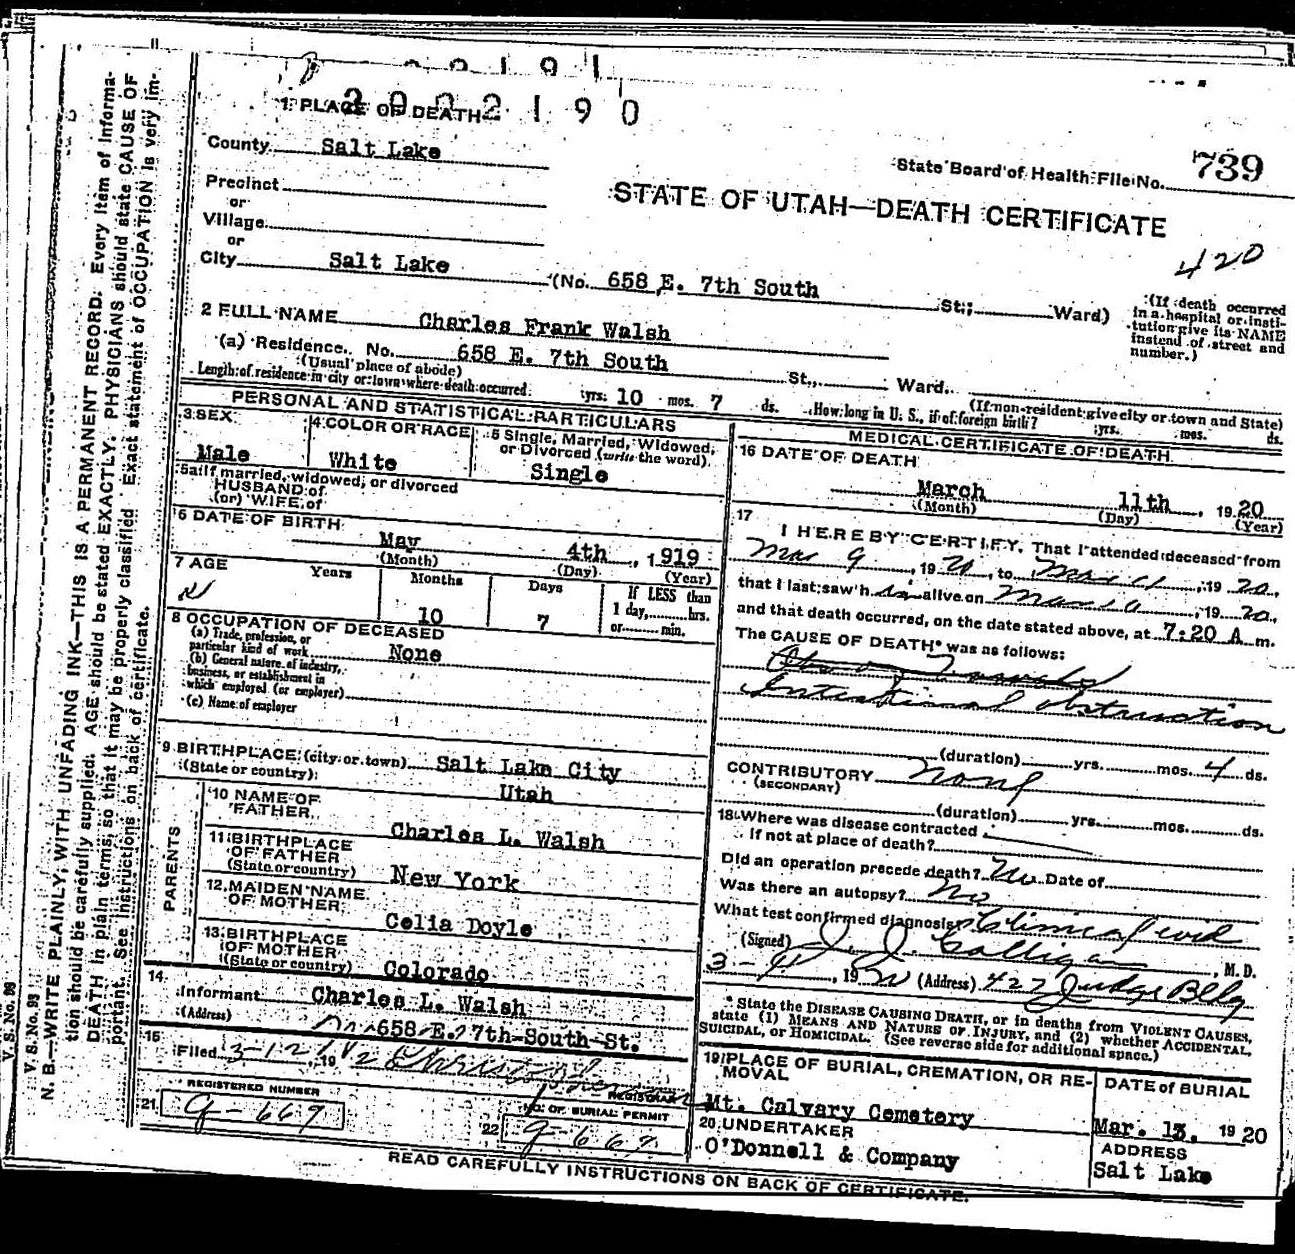 2022190
1 PLACE OF DEATH
County Salt Lake
State Board of Health File No. 739
Precinct
or
STATE OF UTAH—DEATH CERTIFICATE
Village
or
420
City Salt Lake (No. 658 E. 7th South St.; Ward)
(If death occurred in a hospital or institution give its NAME instead of street and number.)
2 FULL NAME Charles Frank Walsh
(a) Residence. No. 658 E. 7th South St., Ward.
(Usual place of abode) (If non-resident give city or town and State)
Length of residence in city or town where death occurred yrs. 10 mos. 7 ds. How long in U. S., if of foreign birth? yrs. mos. ds.
PERSONAL AND STATISTICAL PARTICULARS
3 SEX
Male
4 COLOR OR RACE
White
5 Single, Married, Widowed,
or Divorced (write the word)
Single
5a If married, widowed, or divorced
HUSBAND of
(or) WIFE of
6 DATE OF BIRTH
May 4th, 1919
(Month) (Day) (Year)
7 AGE
Years Months Days If LESS than
1 day, hrs.
10 7 or min.
8 OCCUPATION OF DECEASED
(a) Trade, profession, or
particular kind of work None
(b) General nature of industry,
business, or establishment in
which employed (or employer)
(c) Name of employer
9 BIRTHPLACE (city or town) Salt Lake City
(State or country) Utah
PARENTS
10 NAME OF
FATHER Charles L. Walsh
11 BIRTHPLACE
OF FATHER
(State or country) New York
12 MAIDEN NAME
OF MOTHER Celia Doyle
13 BIRTHPLACE
OF MOTHER
(State or country) Colorado
14
Informant Charles L. Walsh
(Address) 658 E. 7th South St.
15
Filed 3-12, 19
REGISTRAR
REGISTERED NUMBER
21 G-667
NO. OF BURIAL PERMIT
22 G-667
MEDICAL CERTIFICATE OF DEATH
16 DATE OF DEATH
March 11th, 1920
(Month) (Day) (Year)
17
I HEREBY CERTIFY, That I attended deceased from
Mar 9, 1920, to Mar 11, 1920,
that I last saw h im alive on Mar, 1920,
and that death occurred, on the date stated above, at 7:20 A m.
The CAUSE OF DEATH* was as follows:
Intestinal obstruction
(duration) yrs. mos. 4 ds.
CONTRIBUTORY None
(SECONDARY)
(duration) yrs. mos. ds.
18 Where was disease contracted
if not at place of death?
Did an operation precede death? No Date of
Was there an autopsy? No
What test confirmed diagnosis? Clinical evid
(Signed) J. J. Galligan, M. D.
3-11, 1920 (Address) 427 Judge Bldg
* State the DISEASE CAUSING DEATH, or in deaths from VIOLENT CAUSES,
state (1) MEANS AND NATURE OF INJURY, and (2) whether ACCIDENTAL,
SUICIDAL, or HOMICIDAL. (See reverse side for additional space.)
19 PLACE OF BURIAL, CREMATION, OR REMOVAL
Mt. Calvary Cemetery
DATE of BURIAL
Mar. 13, 1920
20 UNDERTAKER
O'Donnell & Company
ADDRESS
Salt Lake
READ CAREFULLY INSTRUCTIONS ON BACK OF CERTIFICATE.
V. S. No. 98
V. S. No. 98
N. B.—WRITE PLAINLY, WITH UNFADING INK—THIS IS A PERMANENT RECORD. Every item of information should be carefully supplied. AGE should be stated EXACTLY. PHYSICIANS should state CAUSE OF DEATH in plain terms, so that it may be properly classified. Exact statement of OCCUPATION is very important. See instructions on back of certificate.